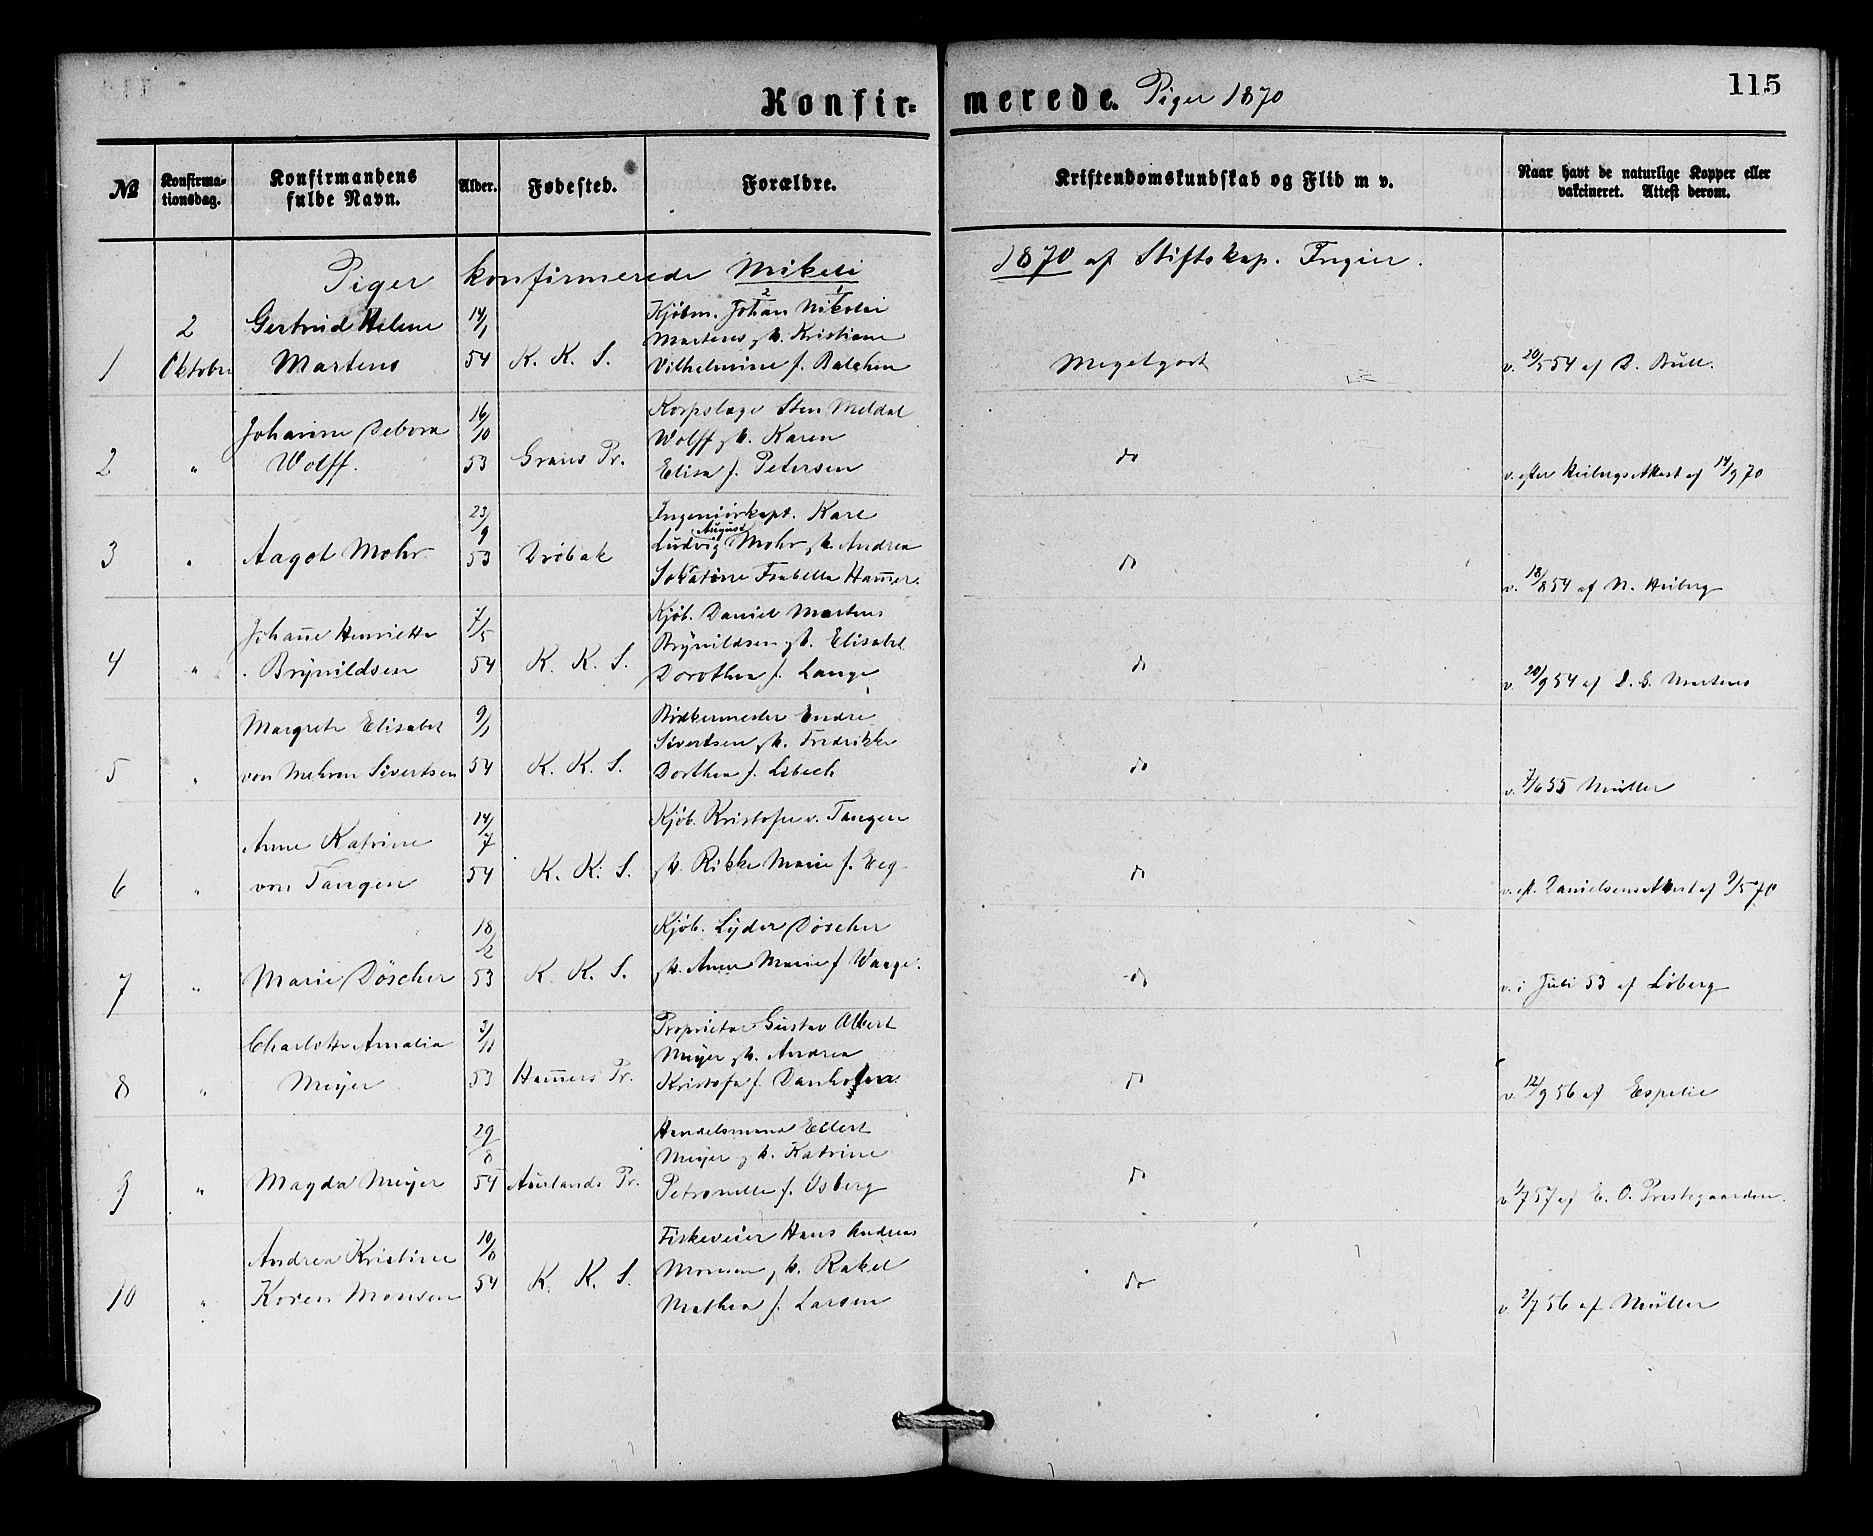 Konfir-
merede. Piger 1870
115
№
Konfirma-
tionsdag.
Konfirmandens
fulde Navn.
Alder.
Fødested.
Forældre.
Kristendomskundskab og Flid m v.
Naar havt de naturlige Kopper eller
vakcineret. Attest derom.
Piger konfirmerede Mikeli
1870 af Stiftskap.
1
2
Oktober
Gertrud Helene
Martens
14/1
54
K. K. S.
Kjøbm. Johan Nikolai
Martens Kristiane
Vilhelmine f. Balchen
Megetgodt
v. 20/5 54 af D. Bull.
2
"
Johanne Debora
Wolff.
16/10
53
Grans Pr.
Korpslæge Sten Meldal
Wolff Karen
Elisa f. Petersen
do
v. efter Heibergs Attest af 14/9 70
3
"
Aagot Mohr
23/9
53
Drøbak
Ingeniørkapt. Karl
August
Ludvig Mohr Andrea
Isabella Hammer.
do
v. 18/8 54 af N. Heiberg
4
"
Johanne Henriette
Brynildsen
7/5
54
K. K. S.
Kjøb. Daniel Martens
Brynildsen Elisabet
Dorothea f. Lange
do
v. 20/9 54 af Martens
5
"
Margrete Elisabet
von Mehren Sivertsen
9/1
54
K. K. S.
Bødkermester Endre
Sivertsen Fredrikke
Dorthea f. Libech
do
v. 7/6 55 Müller
6
"
Anne Katrine
von Tangen
14/7
54
K. K. S.
Kjøb. Kristofer v. Tangen
Rikke Marie f. Eeg
do
v. eft. Danielsens Attest af 9/5 70
7
"
Marie Döscher
18/2
53
K. K. S.
Kjøb. Lyder Döscher
Anne Marie f Waage.
do
v. i Juli 53 af Löberg
8
"
Charlotte Amalia
Meyer
3/11
53
Hammers Pr.
Proprietær Gustav Albert
Meyer Andrea
Kristofa f.
do
v. 12/9 56 af Espelie
9
"
Magda Meyer
29/8
54
Aurlands Pr.
Handelsmand Ellert
Meyer Katrine
Petronelle f. Osberg
do
v 1/7 57 af E. O. Prestegaarden.
10
"
Andrea Kristine
Koren Monsen
10/8
54
K. K. S.
Fiskeveier Hans Andreas
Monsen Rakel
Mathea f. Larsen
do
v. 2/7 56 af Müller